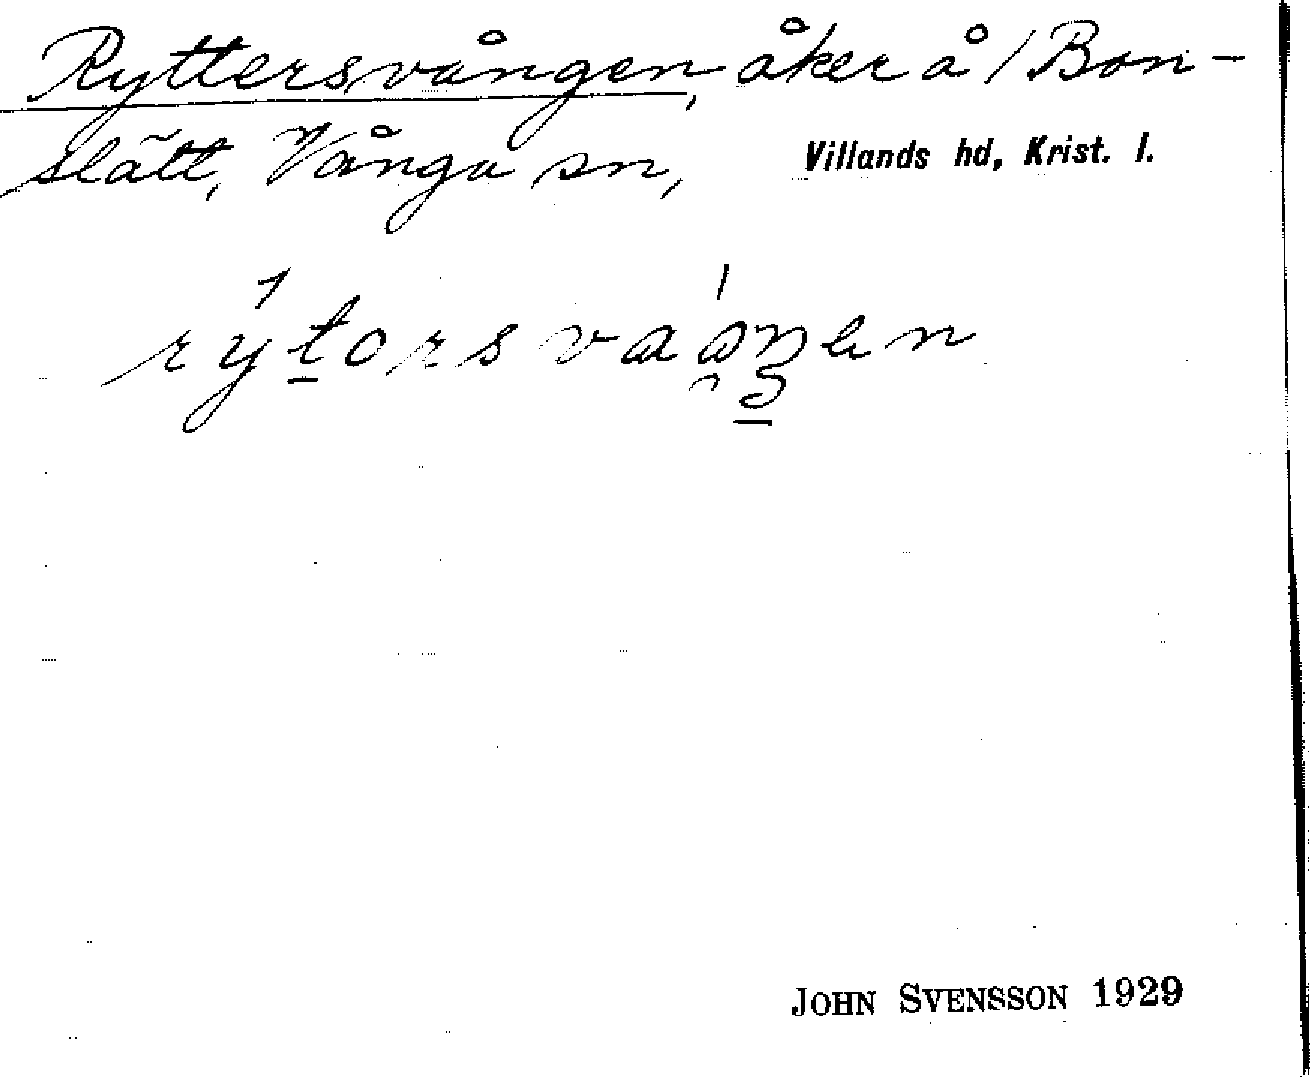 Ryttersvången, åker å / Bon-
slätt, Vånga sn, Villands hd, Krist. l.
JOHN SVENSSON 1929